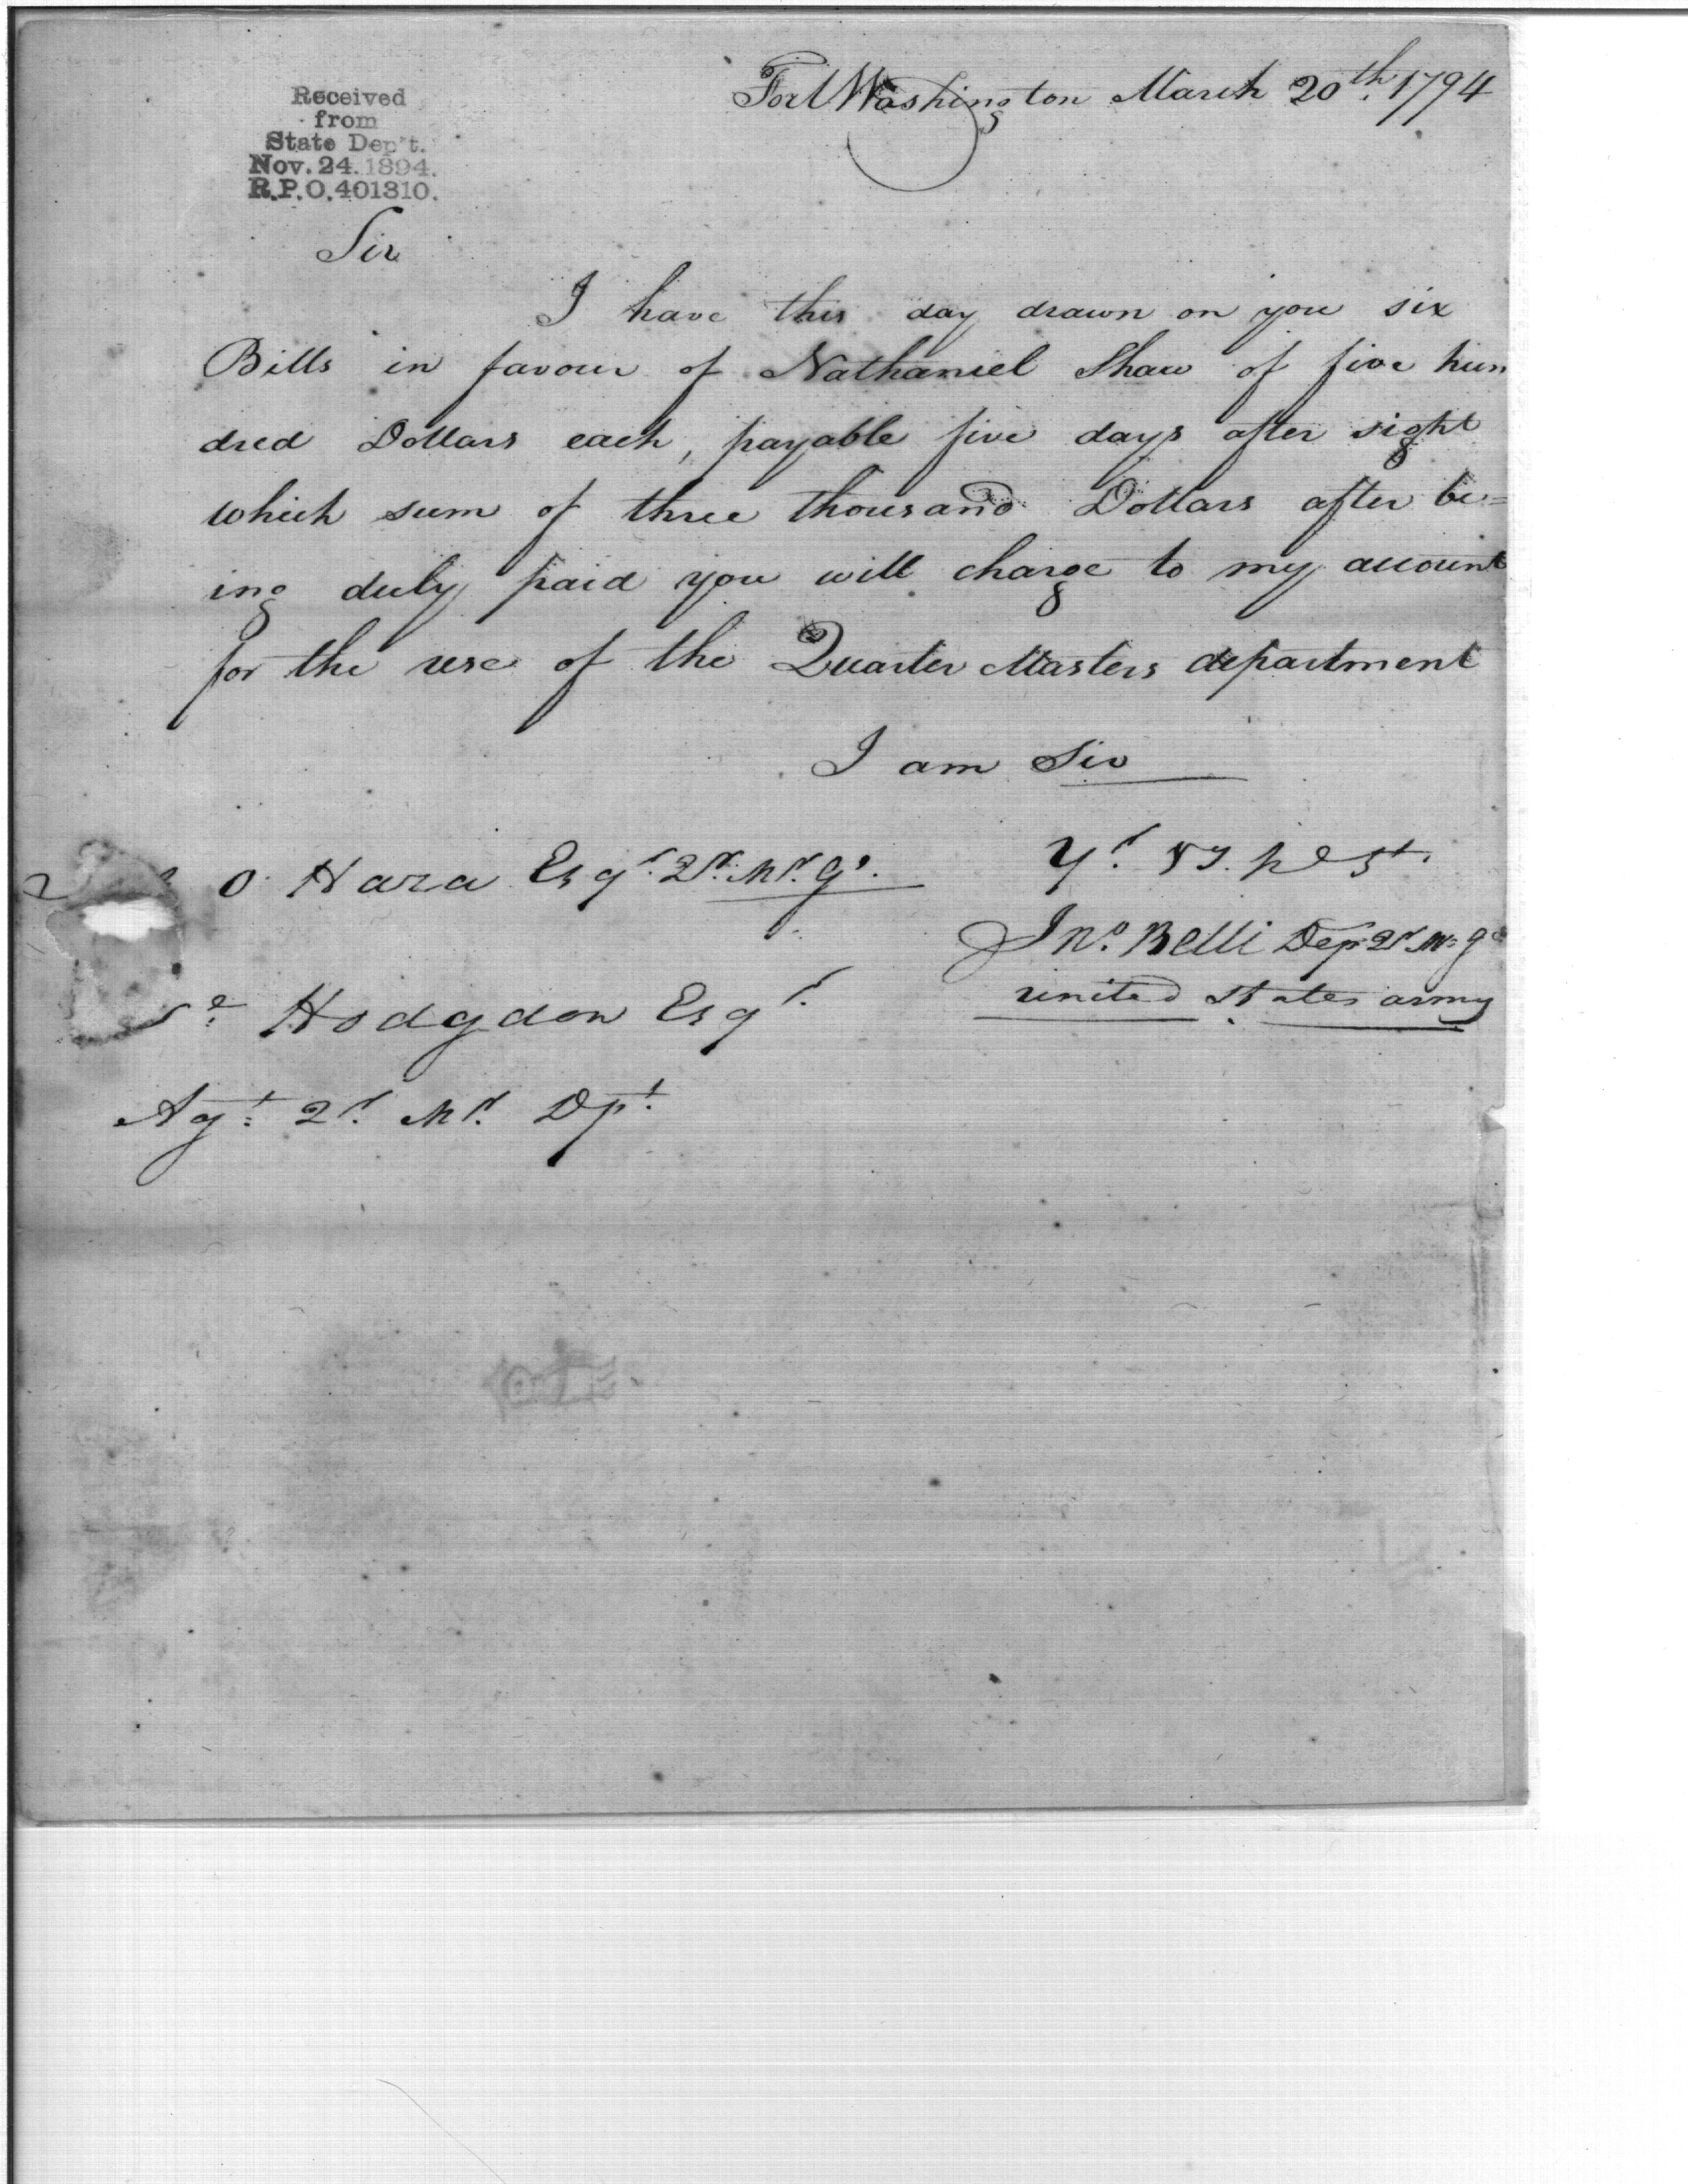 Received
from
State Dep't.
Nov. 24. 1894.
R.P.O. 401310.
Fort Washington March 20th. 1794
Sir
I have this day drawn on you six
Bills in favour of Nathaniel Shaw of five hun
dred Dollars each, payable five days after sight
which sum of three thousand Dollars after be=
ing duly paid you will charge to my account
for the use of the Quarter Masters department
I am Sir
O Hara Esqr. Qr. Mr. Gl.
Yr.
Jno. Belli Dep Qr. M. G
united states army
Hodgdon Esqr.
Agt. Qr. Mr. Dpt.